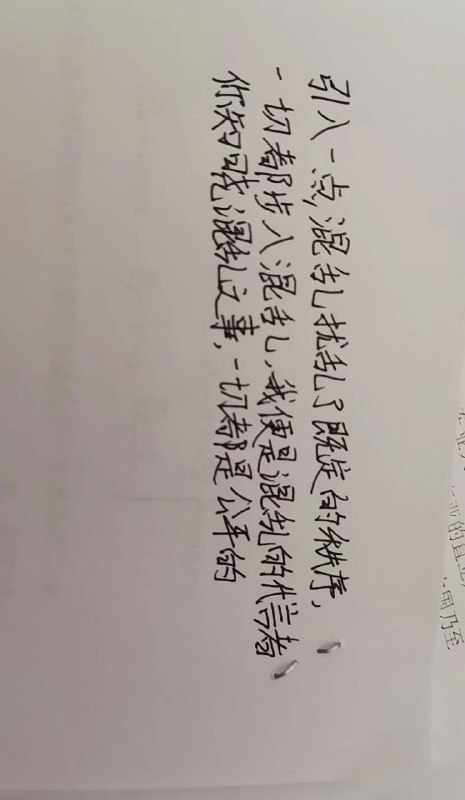 引入一点混乱扰乱了既定的秩序,
一切都步入混乱,我便是混乱的代言者
你知晓混乱之事,一切都是公平的
国乃至